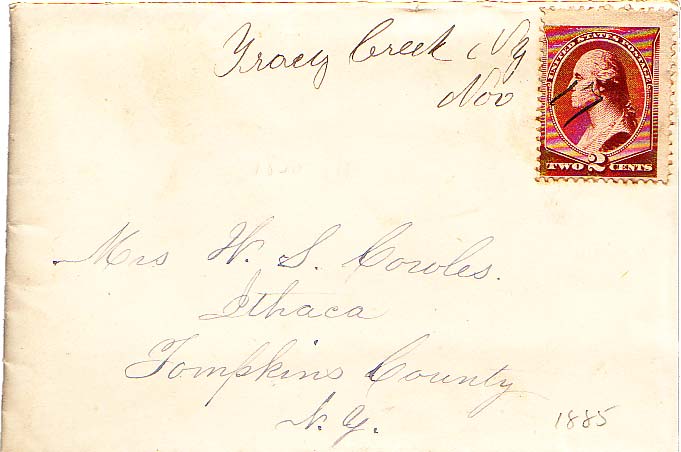 Tracy Creek NY
Nov 17
UNITED STATES POSTAGE
TWO 2 CENTS
Mrs W. S. Cowles.
Ithaca
Tompkins County
N. Y.
1885